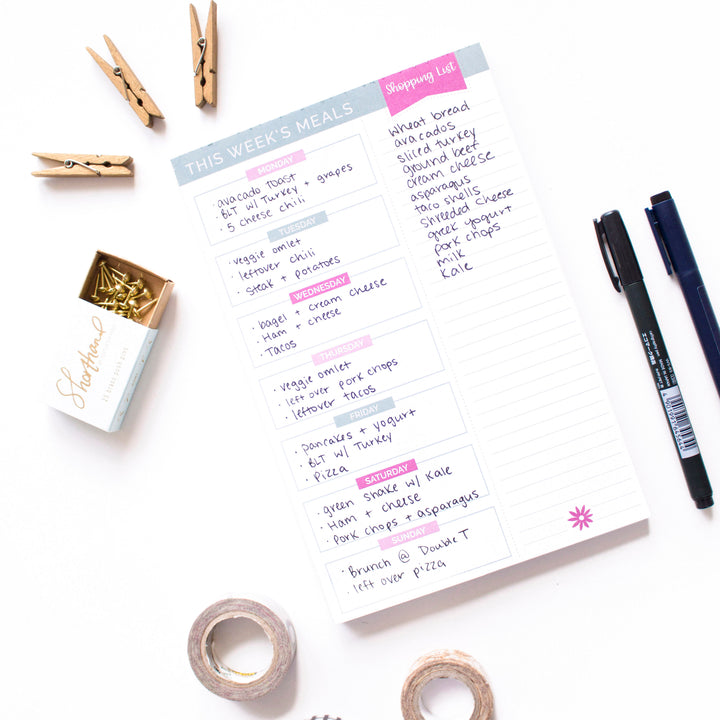 THIS WEEK'S MEALS
MONDAY
· avacado toast
· BLT w/ Turkey + grapes
· 5 cheese chili
TUESDAY
· veggie omlet
· leftover chili
· steak + potatoes
WEDNESDAY
· bagel + cream cheese
· Ham + cheese
· Tacos
THURSDAY
· veggie omlet
· left over pork chops
· leftover tacos
FRIDAY
· pancakes + yogurt
· BLT w/ Turkey
· Pizza
SATURDAY
· green shake w/ Kale
· Ham + cheese
· Pork chops + asparagus
SUNDAY
· Brunch @ Double T
· left over pizza
Shopping List
Wheat bread
avacados
sliced turkey
ground beef
cream cheese
asparagus
taco shells
shreeded cheese
greek yogurt
pork chops
milk
Kale
Shorthand